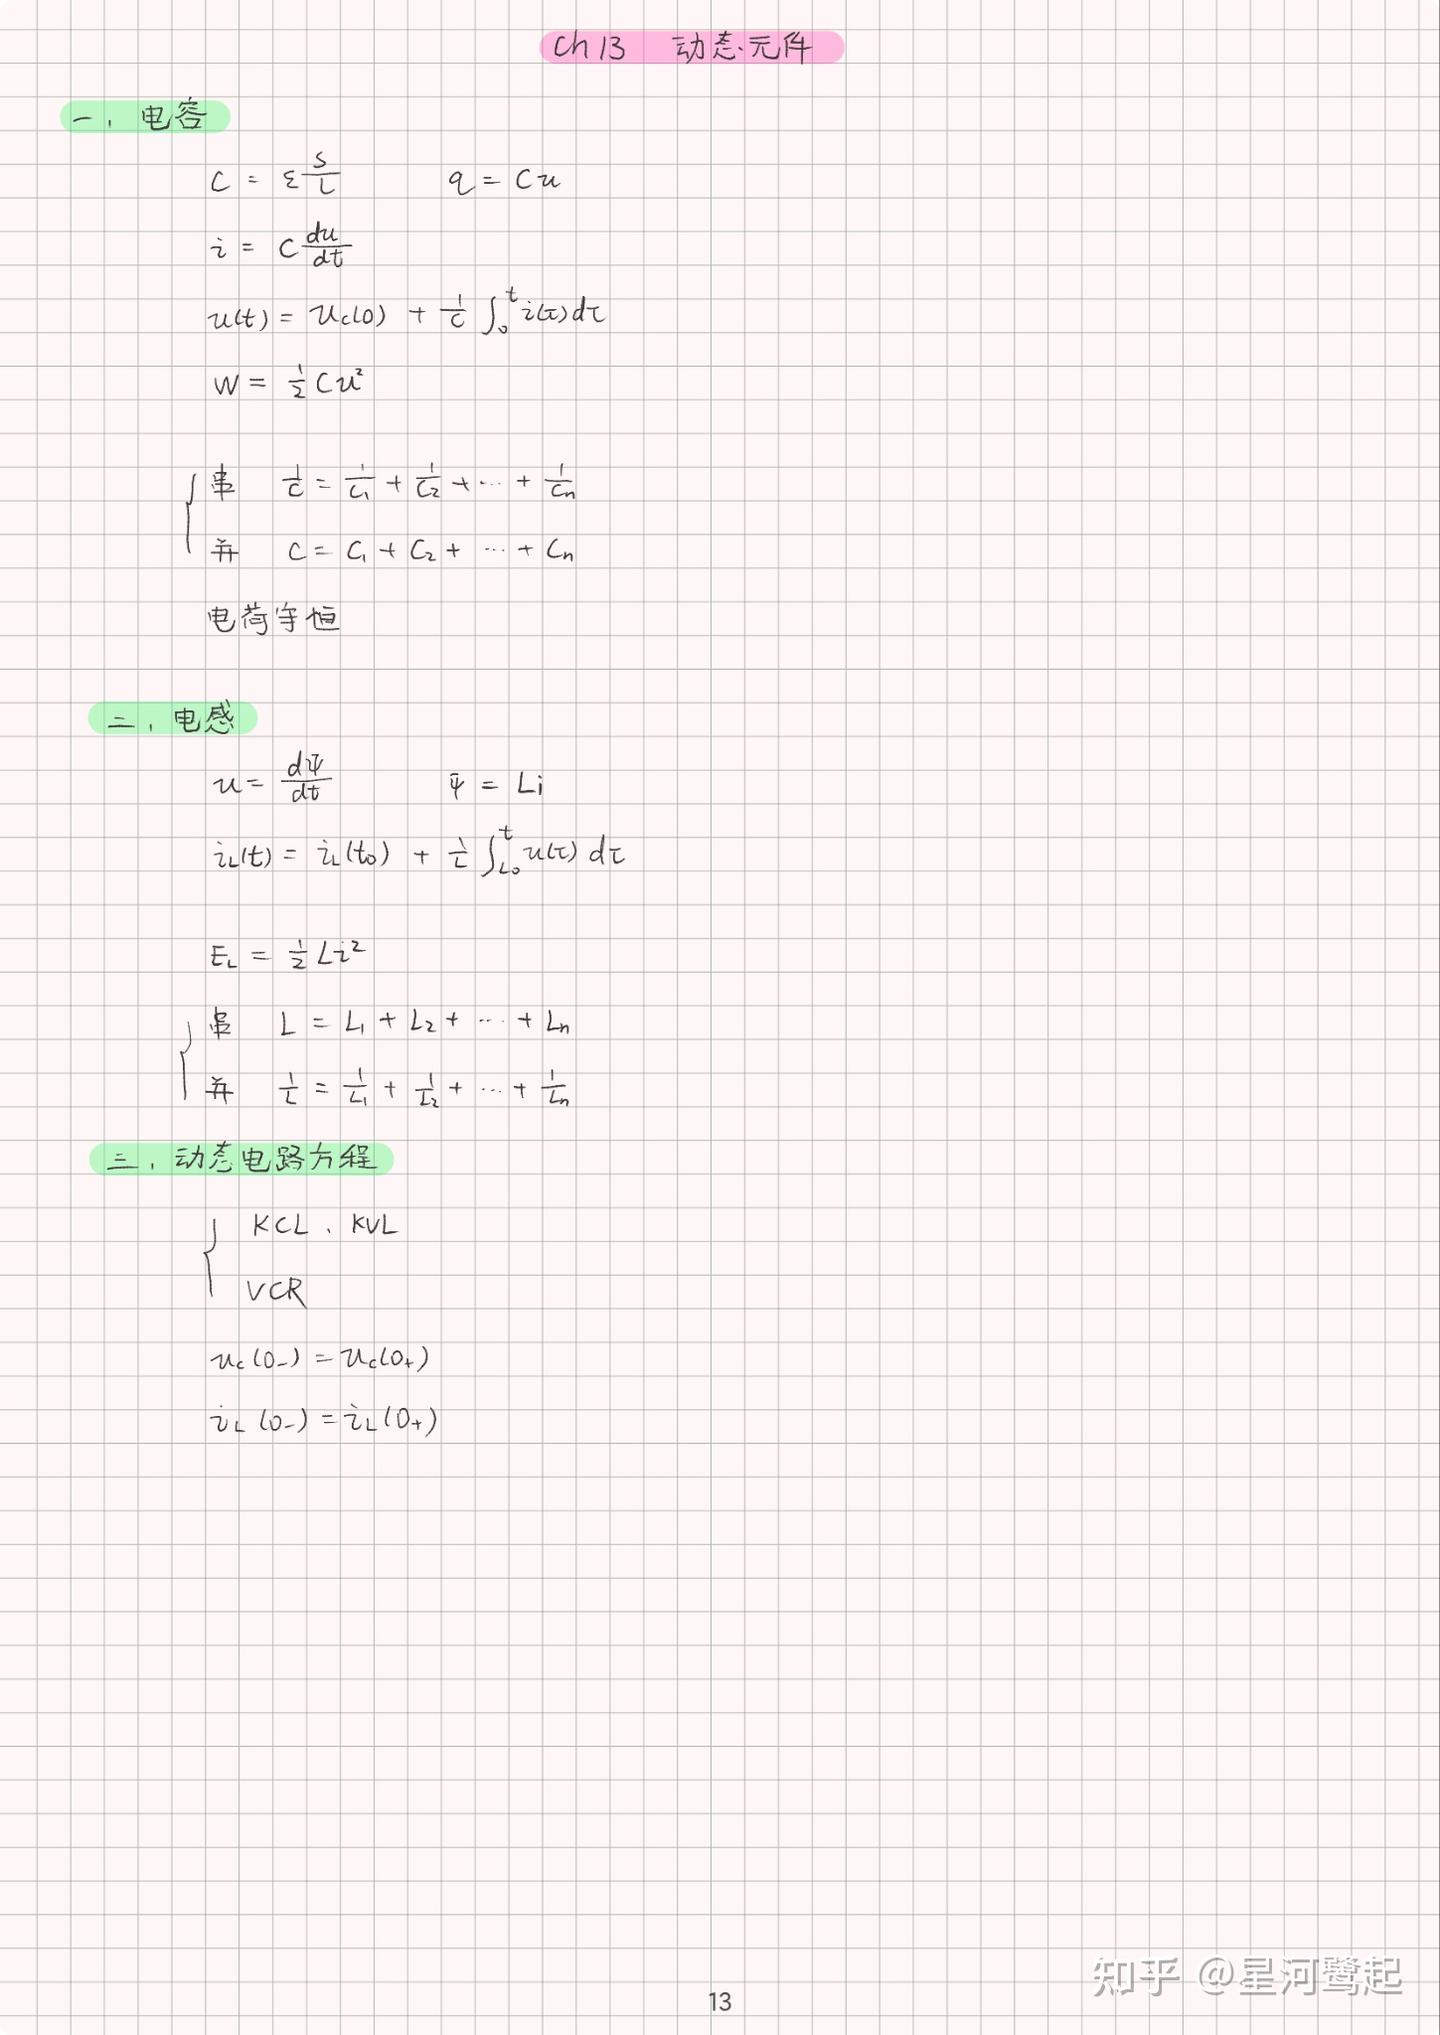 Ch 13 动态元件
一. 电容
C = ε S/L q = Cu
i = C du/dt
u(t) = uc(0) + 1/C ∫₀ᵗ i(τ)dτ
W = 1/2 Cu²
串 1/C = 1/C₁ + 1/C₂ + ... + 1/Cn
并 C = C₁ + C₂ + ... + Cn
电荷守恒
二. 电感
u = dΨ/dt Ψ = Li
iL(t) = iL(t₀) + 1/L ∫t₀ᵗ u(τ) dτ
EL = 1/2 Li²
串 L = L₁ + L₂ + ... + Ln
并 1/L = 1/L₁ + 1/L₂ + ... + 1/Ln
三. 动态电路方程
KCL、KVL
VCR
uc(0₋) = uc(0₊)
iL(0₋) = iL(0₊)
知乎 @星河鹭起
13